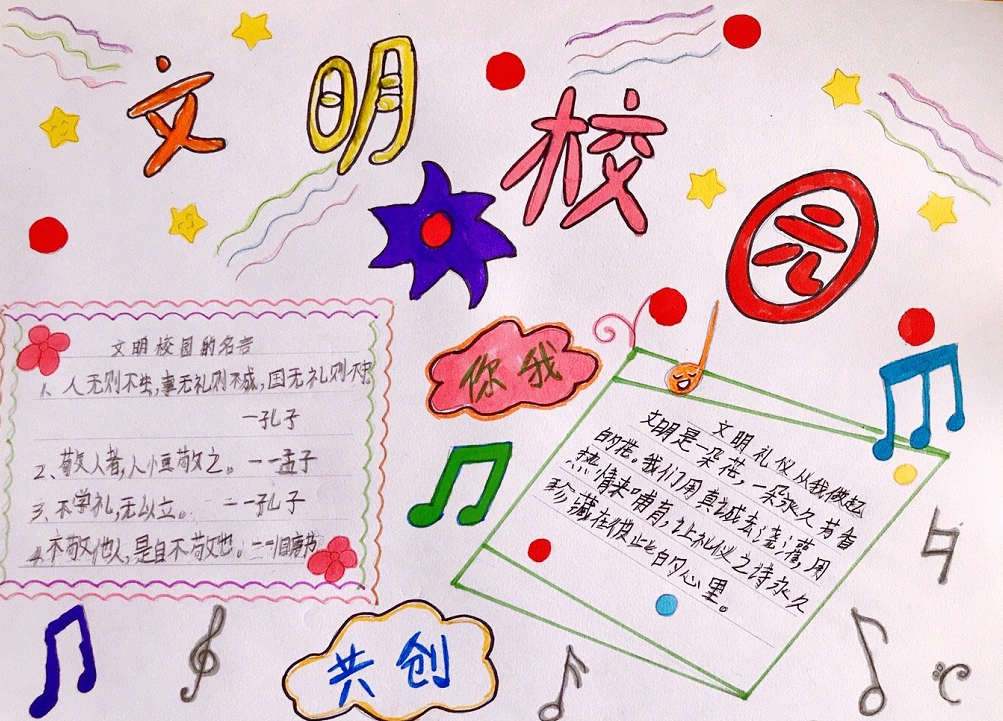 文明校园
你我
共创
文明校园的名言
1、人无则不生,事无礼则不成,国无礼则不宁
一孔子
2、敬人者,人恒敬之。一一孟子
3、不学礼,无以立。一一孔子
4、不敬他人,是自不敬也。一一旧唐书
文明礼仪从我做起
文明是一朵花,一朵永久芳香
的花。我们用真诚去浇灌,用
热情来哺育,让礼仪之诗永久
珍藏在彼此的心里。